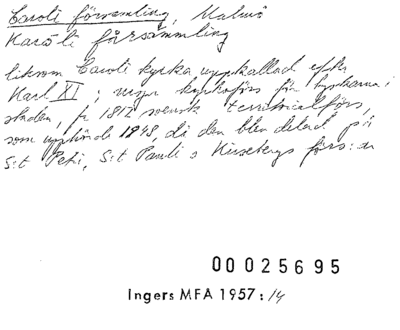 Caroli församling, Malmö
Karåli fårsåmmling
liksom Caroli kyrka uppkallad efter
Karl XI; urspr kyrkoförs för tyskarna i
staden, fr 1812 svensk territorialförs,
som upphörde 1948, då den blev delad på
S:t Petri, S:t Pauli o Kirsebergs förs:ar
00025695
Ingers MFA 1957:14